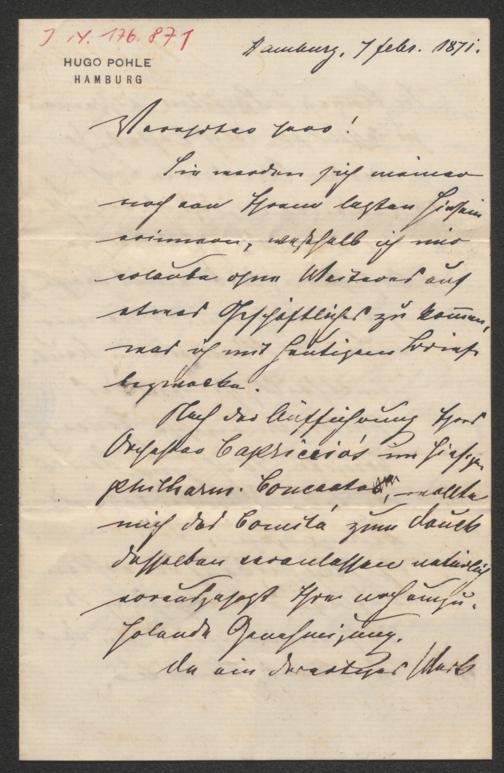 J. N. 176.871
HUGO POHLE
HAMBURG
Hamburg, 7 febr. 1871.
Verehrter Herr!
Sie werden sich meiner
noch von Ihrem letzten Hiersein
erinnern, weßhalb ich mir
erlaube ohne Weiteres auf
etwas Geschäftliches zu kommen,
was ich mit heutigem Brief
bezwecke.
Nach der Aufführung Ihres
Orchester Capriccio's im hiesigen
philharm. Concerte, wollte
mich das Comité zum Druck
desselben veranlassen natürlich
vorausgesetzt Ihre noch einzu-
holende Genehmigung.
Da ein derartiges Werk